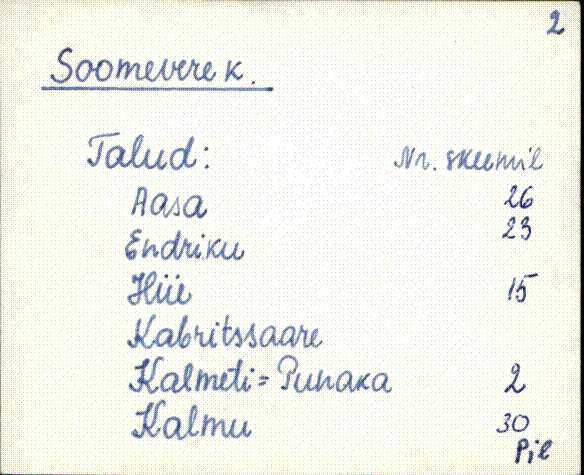 2
Soomevere k.
Talud: Nr. skeemil
Aasa 26
Endriku 23
Hüe 15
Kabritssaare
Kalmeti = Punaka 2
Kalmu 30
Pil